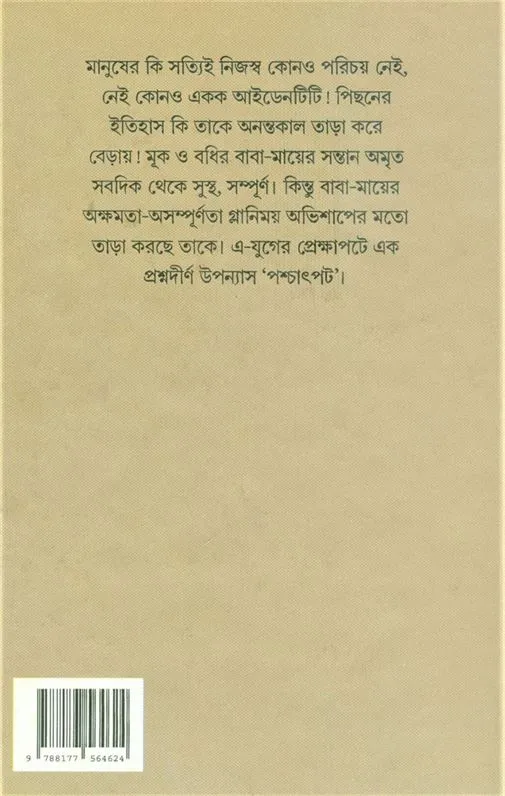 মানুষের কি সত্যিই নিজস্ব কোনও পরিচয় নেই,
নেই কোনও একক আইডেনটিটি! পিছনের
ইতিহাস কি তাকে অনন্তকাল তাড়া করে
বেড়ায়! মূক ও বধির বাবা-মায়ের সন্তান অমৃত
সবদিক থেকে সুস্থ, সম্পূর্ণ। কিন্তু বাবা-মায়ের
অক্ষমতা-অসম্পূর্ণতা গ্লানিময় অভিশাপের মতো
তাড়া করছে তাকে। এ-যুগের প্রেক্ষাপটে এক
প্রশ্নদীর্ণ উপন্যাস ‘পশ্চাৎপট’।
9 788177 564624